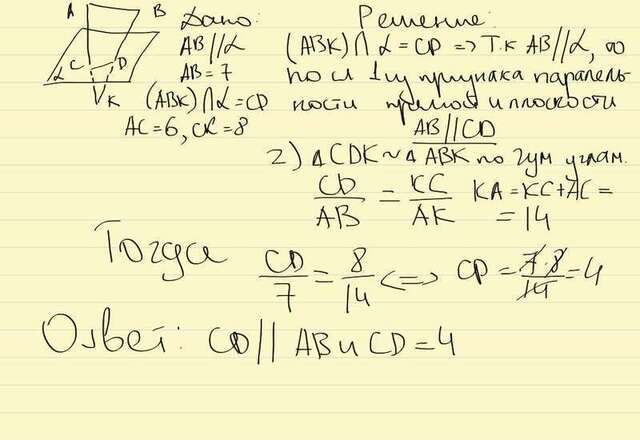 A B
C D
α
K
Дано:
AB∥α
AB=7
(ABK)∩α=CD
AC=6, CK=8
Решение:
(ABK)∩α=CD ⇒ Т.к AB∥α, то
по сл 1му признака паралель-
ности прямой и плоскости
AB∥CD
2) △CDK ~ △ABK по 2ум углам.
CD/AB = KC/AK KA=KC+AC=
=14
Тогда CD/7 = 8/14 ⇔ CD = 7·8/14 = 4
Ответ: CD∥AB и CD=4